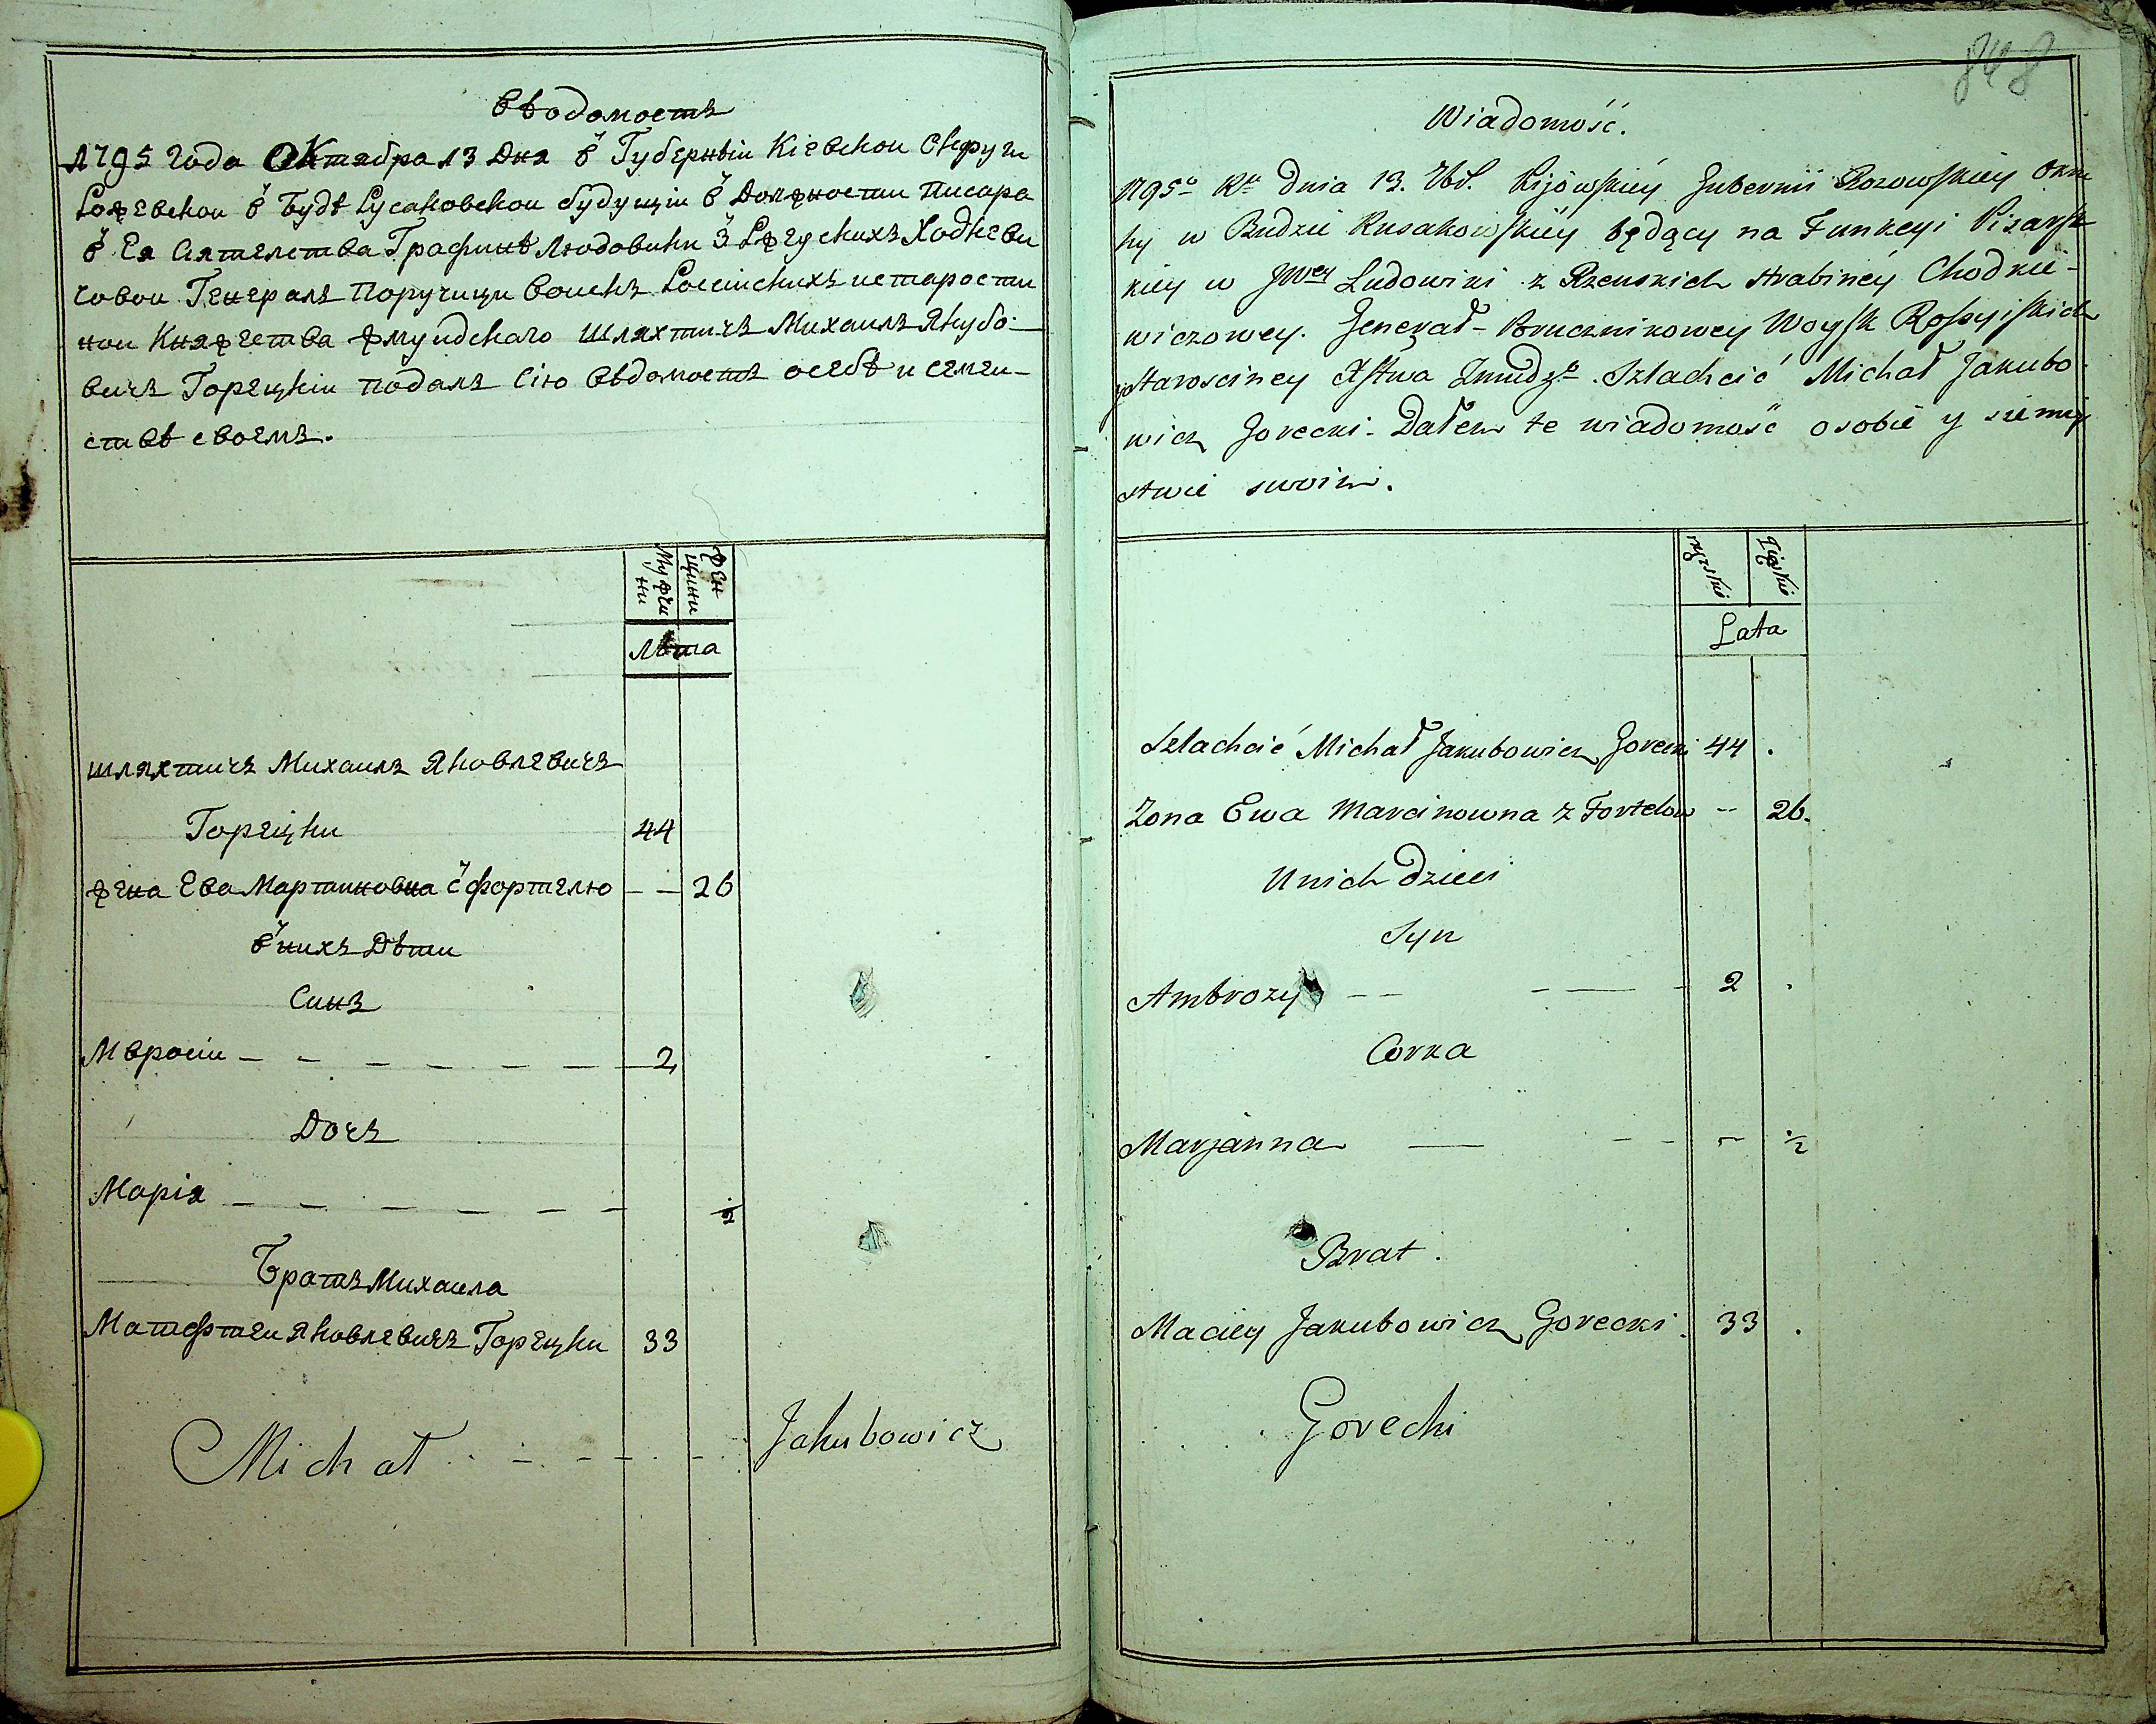 Вѣдомость
1795 года Октября 13 Дня в Губерніи Кіевскои Округи
Рожевскои в Будѣ Русаковскои будущіи в Должности Писара
в Ея Сиятелства Графинѣ Людовики З Ржеускихъ Ходкеви
човои Генералъ Поручици Воискъ Россіискихъ и старости
нои Княжества Жмуидскаго Шляхтичъ Михаилъ Якубо-
вичъ Горецкіи подалъ Сію Вѣдомость о себѣ и семеи-
ствѣ своемъ.
Мужчи
ни
Жен
щини
Лѣта
шляхтичъ Михаилъ Яковлевичъ
Горецки 44
жена Ева Мартиновна с Фортелю — — 26
в них Дѣти
Синъ
Мвросіи — — — — — — 2
Дочъ
Марія — — — — — — ½
Братъ Михаила
Матфтеи Яковлевичъ Горецки 33
Michał Jakubowicz
848
Wiadomość.
1795o Rku dnia 13. 8br. Kijowskiey Gubernii Rozowskiey Okru
hy w Budzie Rusakowskiey będący na Funkcyi Pisarsk
kiey w JWey Ludowiki z Rzeuskich Hrabiney Chodkie-
wiczowey. Generał-Porucznikowey Woysk Rossyiskich
y Starosciney Xstwa Zmudzo. Szlachcić Michał Jakubo
wicz Gorecki. Dałem te wiadomość o sobie y siemiy
stwie swoim.
męzskie
Lata
Szlachcić Michał Jakubowicz Gorecki 44 .
Zona Ewa Marcinowna z Fortelow -- 26.
U nich dzieci
Syn
Ambrozy -- - — - 2 .
Corka
Marjanna — - - - ½
Brat.
Maciey Jakubowicz Gorecki. 33 .
Gorecki